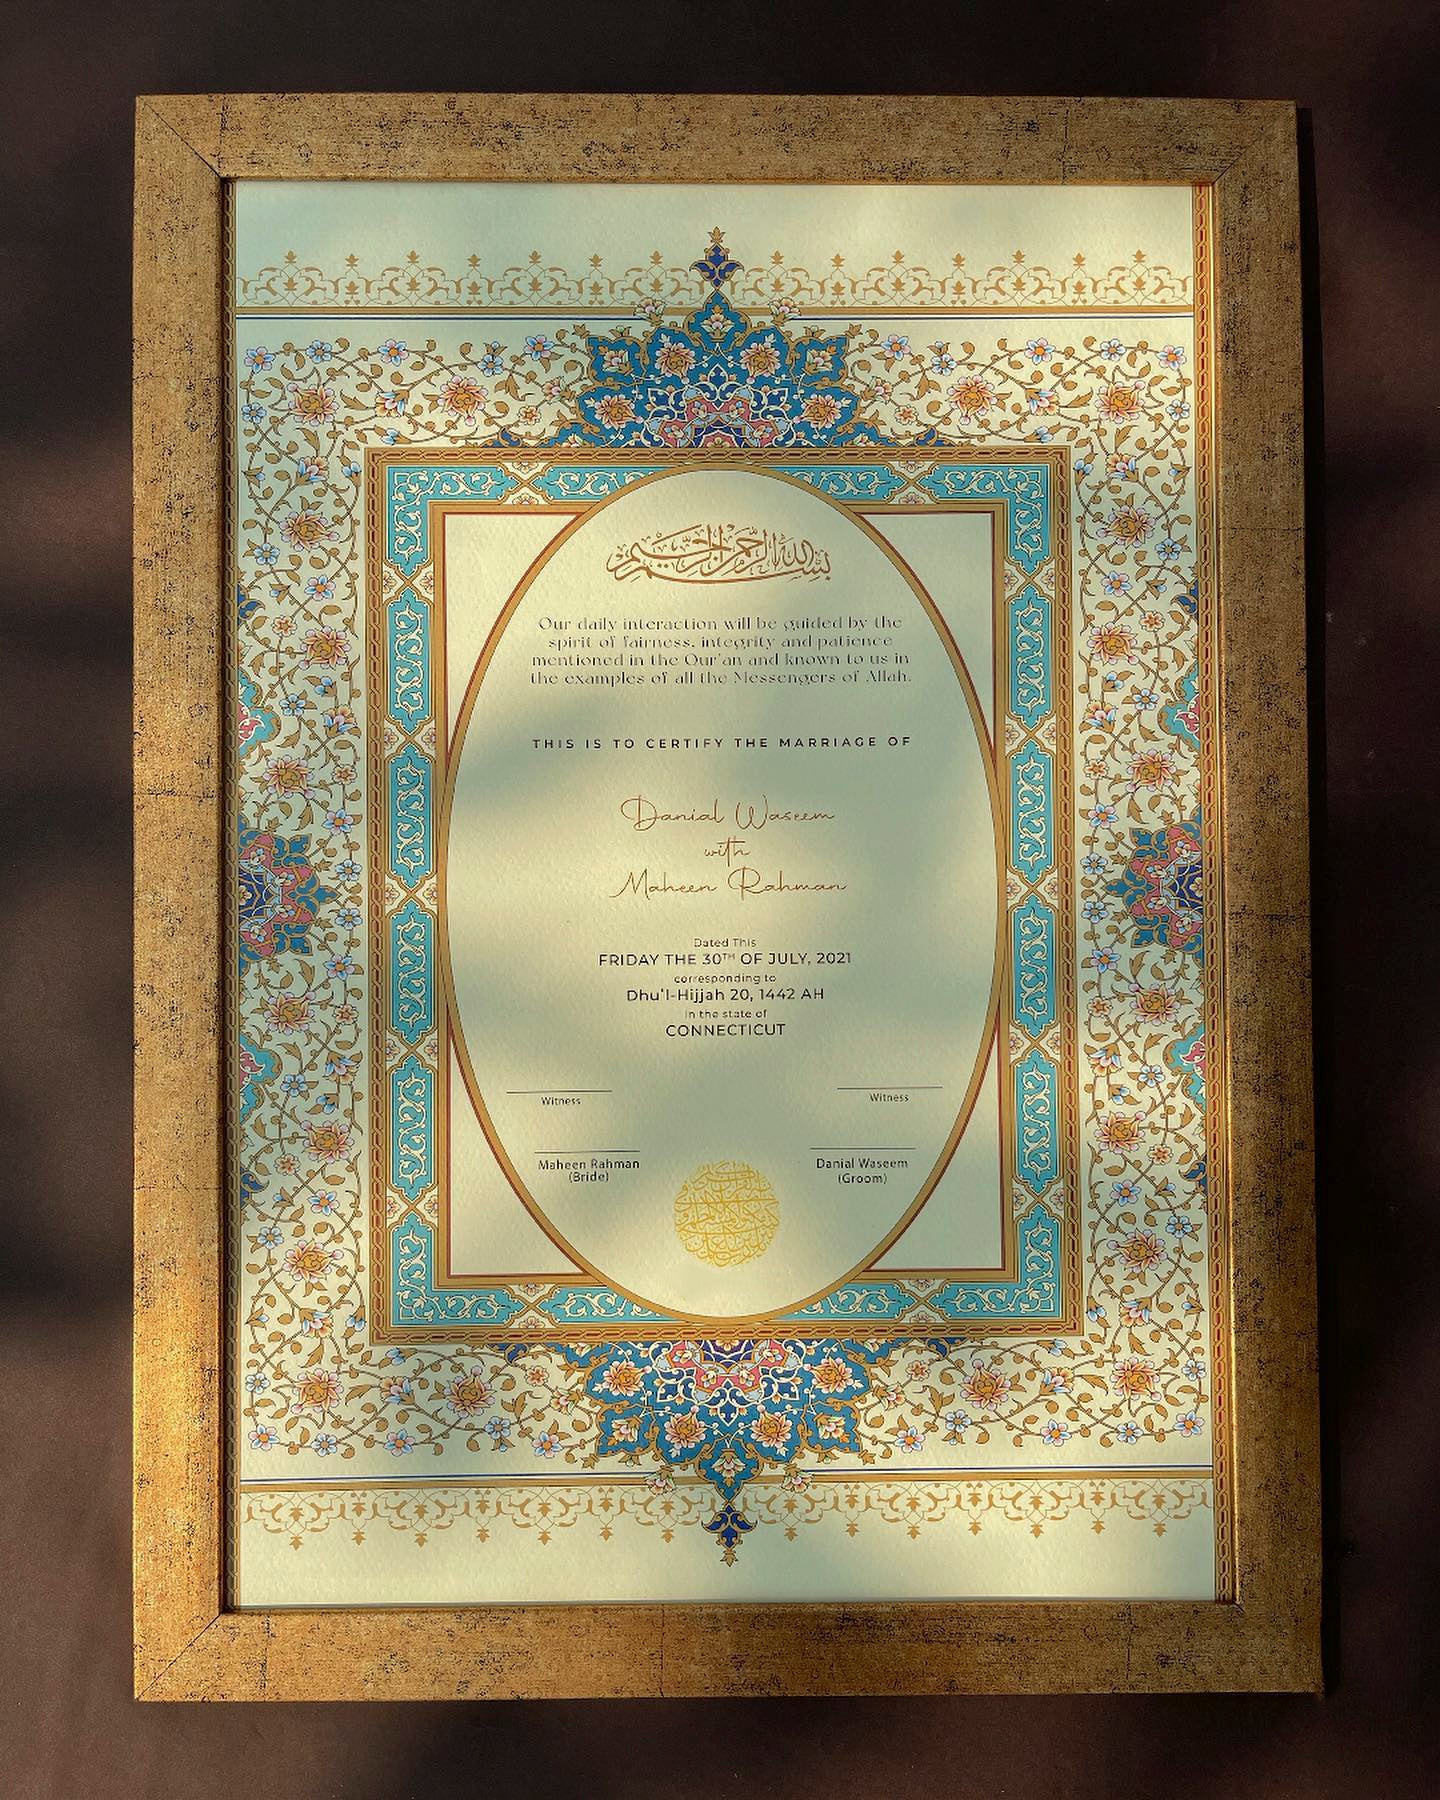 بسم الله الرحمن الرحيم
Our daily interaction will be guided by the
spirit of fairness, integrity and patience
mentioned in the Qur'an and known to us in
the examples of all the Messengers of Allah.
THIS IS TO CERTIFY THE MARRIAGE OF
Danial Waseem
with
Maheen Rahman
Dated This
FRIDAY THE 30TH OF JULY, 2021
corresponding to
Dhu'l-Hijjah 20, 1442 AH
in the state of
CONNECTICUT
Witness
Witness
Maheen Rahman
(Bride)
Danial Waseem
(Groom)